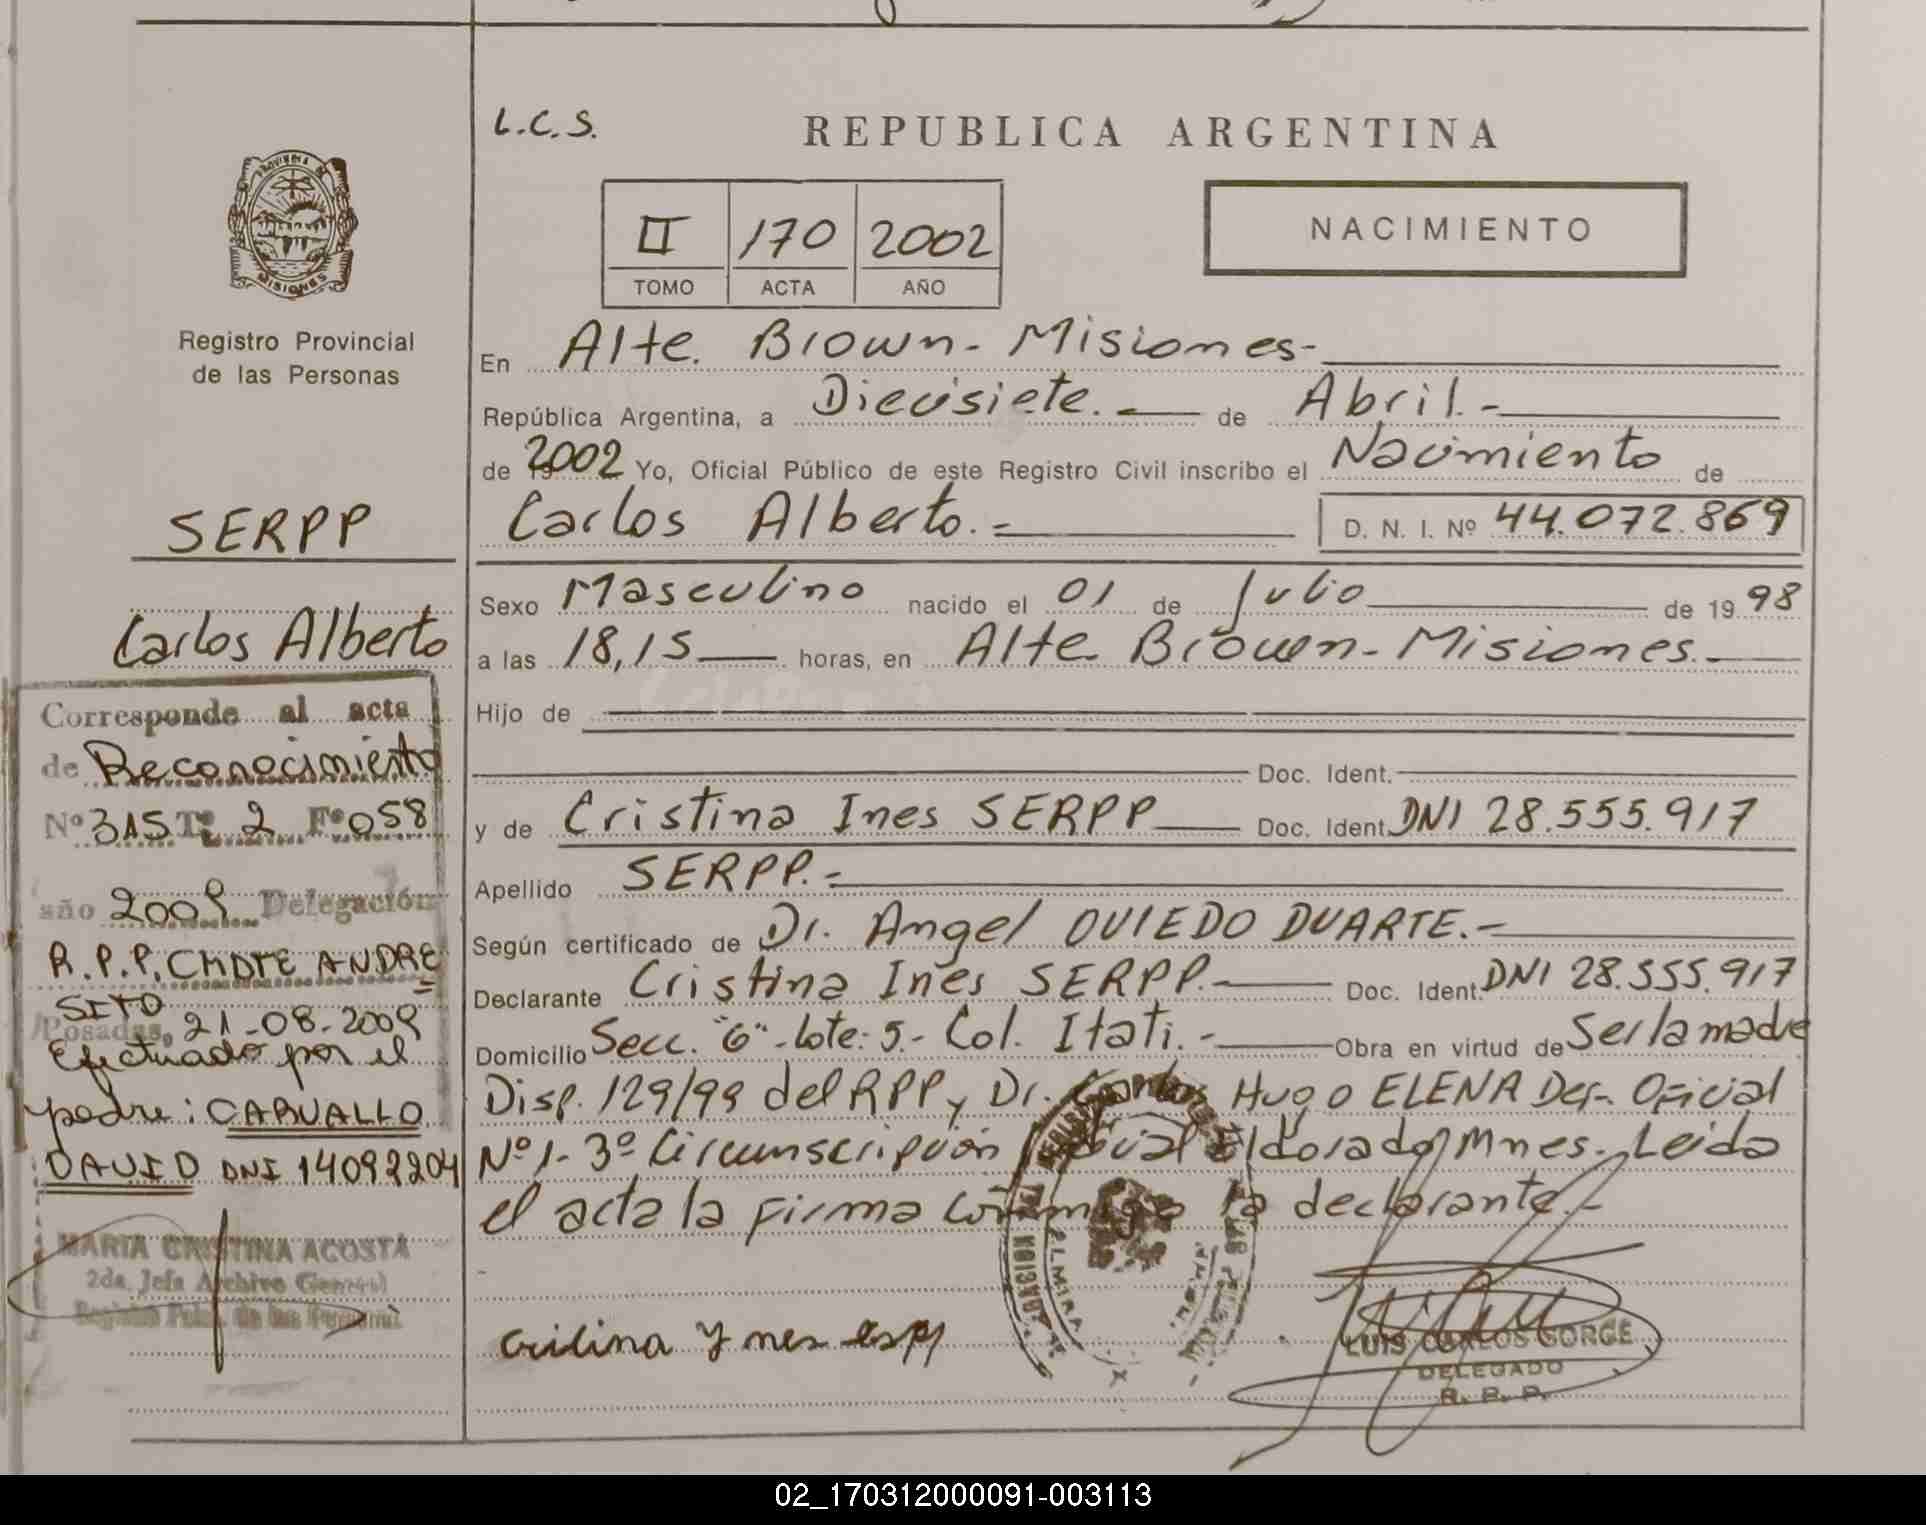 L.C.S.
REPUBLICA ARGENTINA
II 170 2002
TOMO ACTA AÑO
NACIMIENTO
PROVINCIA DE MISIONES
Registro Provincial
de las Personas
SERPP
Carlos Alberto
Corresponde al acta
de Reconocimiento
Nº 315 Tº 2 Fº 058
año 2009 Delegación
R.P.P. CMDTE ANDRE
SITO
Posadas, 21-08-2009
Efectuado por el
padre: CARVALLO
DAVID DNI 14092204
MARIA CRISTINA ACOSTA
2da. Jefa Archivo General
Registro de las
En Alte. Brown - Misiones -
República Argentina, a Diecisiete. - de Abril. -
de 2002 Yo, Oficial Público de este Registro Civil inscribo el Nacimiento de
Carlos Alberto. - D. N. I. Nº 44.072.869
Sexo Masculino nacido el 01 de Julio de 19 98
a las 18,15 horas, en Alte Brown - Misiones. -
Hijo de
Doc. Ident.
y de Cristina Ines SERPP Doc. Ident. DNI 28.555.917
Apellido SERPP. -
Según certificado de Dr. Angel OVIEDO DUARTE. -
Declarante Cristina Ines SERPP. - Doc. Ident. DNI 28.555.917
Domicilio Secc. "6" - lote: 5. - Col. Itati. - Obra en virtud de Ser la madre
Disp. 129/99 del RPP y Dr. Carlos Hugo ELENA Def. Oficial
Nº 1 - 3º Circunscripción Judicial Eldorado Mnes. Leida
el acta la firma conmigo la declarante. -
LUIS CARLOS GORGE
DELEGADO
R. P. P.
02_170312000091-003113